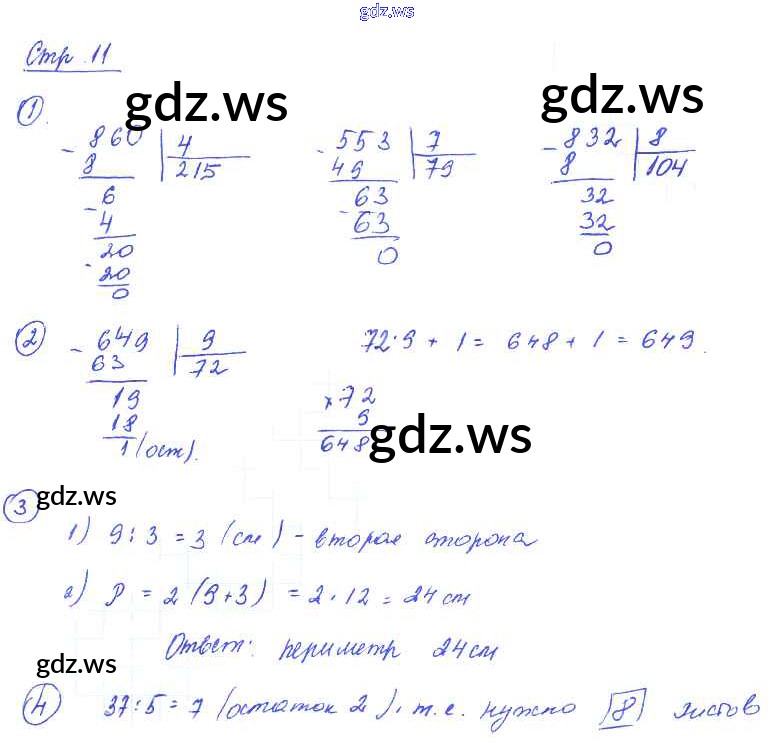 gdz.ws
Стр. 11
gdz.ws gdz.ws
① - 860 | 4 - 553 | 7 - 832 | 8
8 215 49 79 8 104
- 6 - 63 32
4 63 32
- 20 0 0
20
0
② - 649 | 9 72·9 + 1 = 648 + 1 = 649.
63 72
19 × 72
18 9
1 (ост). 648
gdz.ws
③ gdz.ws
1) 9 : 3 = 3 (см) - вторая сторона
2) P = 2 (9+3) = 2 · 12 = 24 см
Ответ: периметр 24 см
gdz.ws
④ 37:5 = 7 (остаток 2), т.е. нужно 8 листов